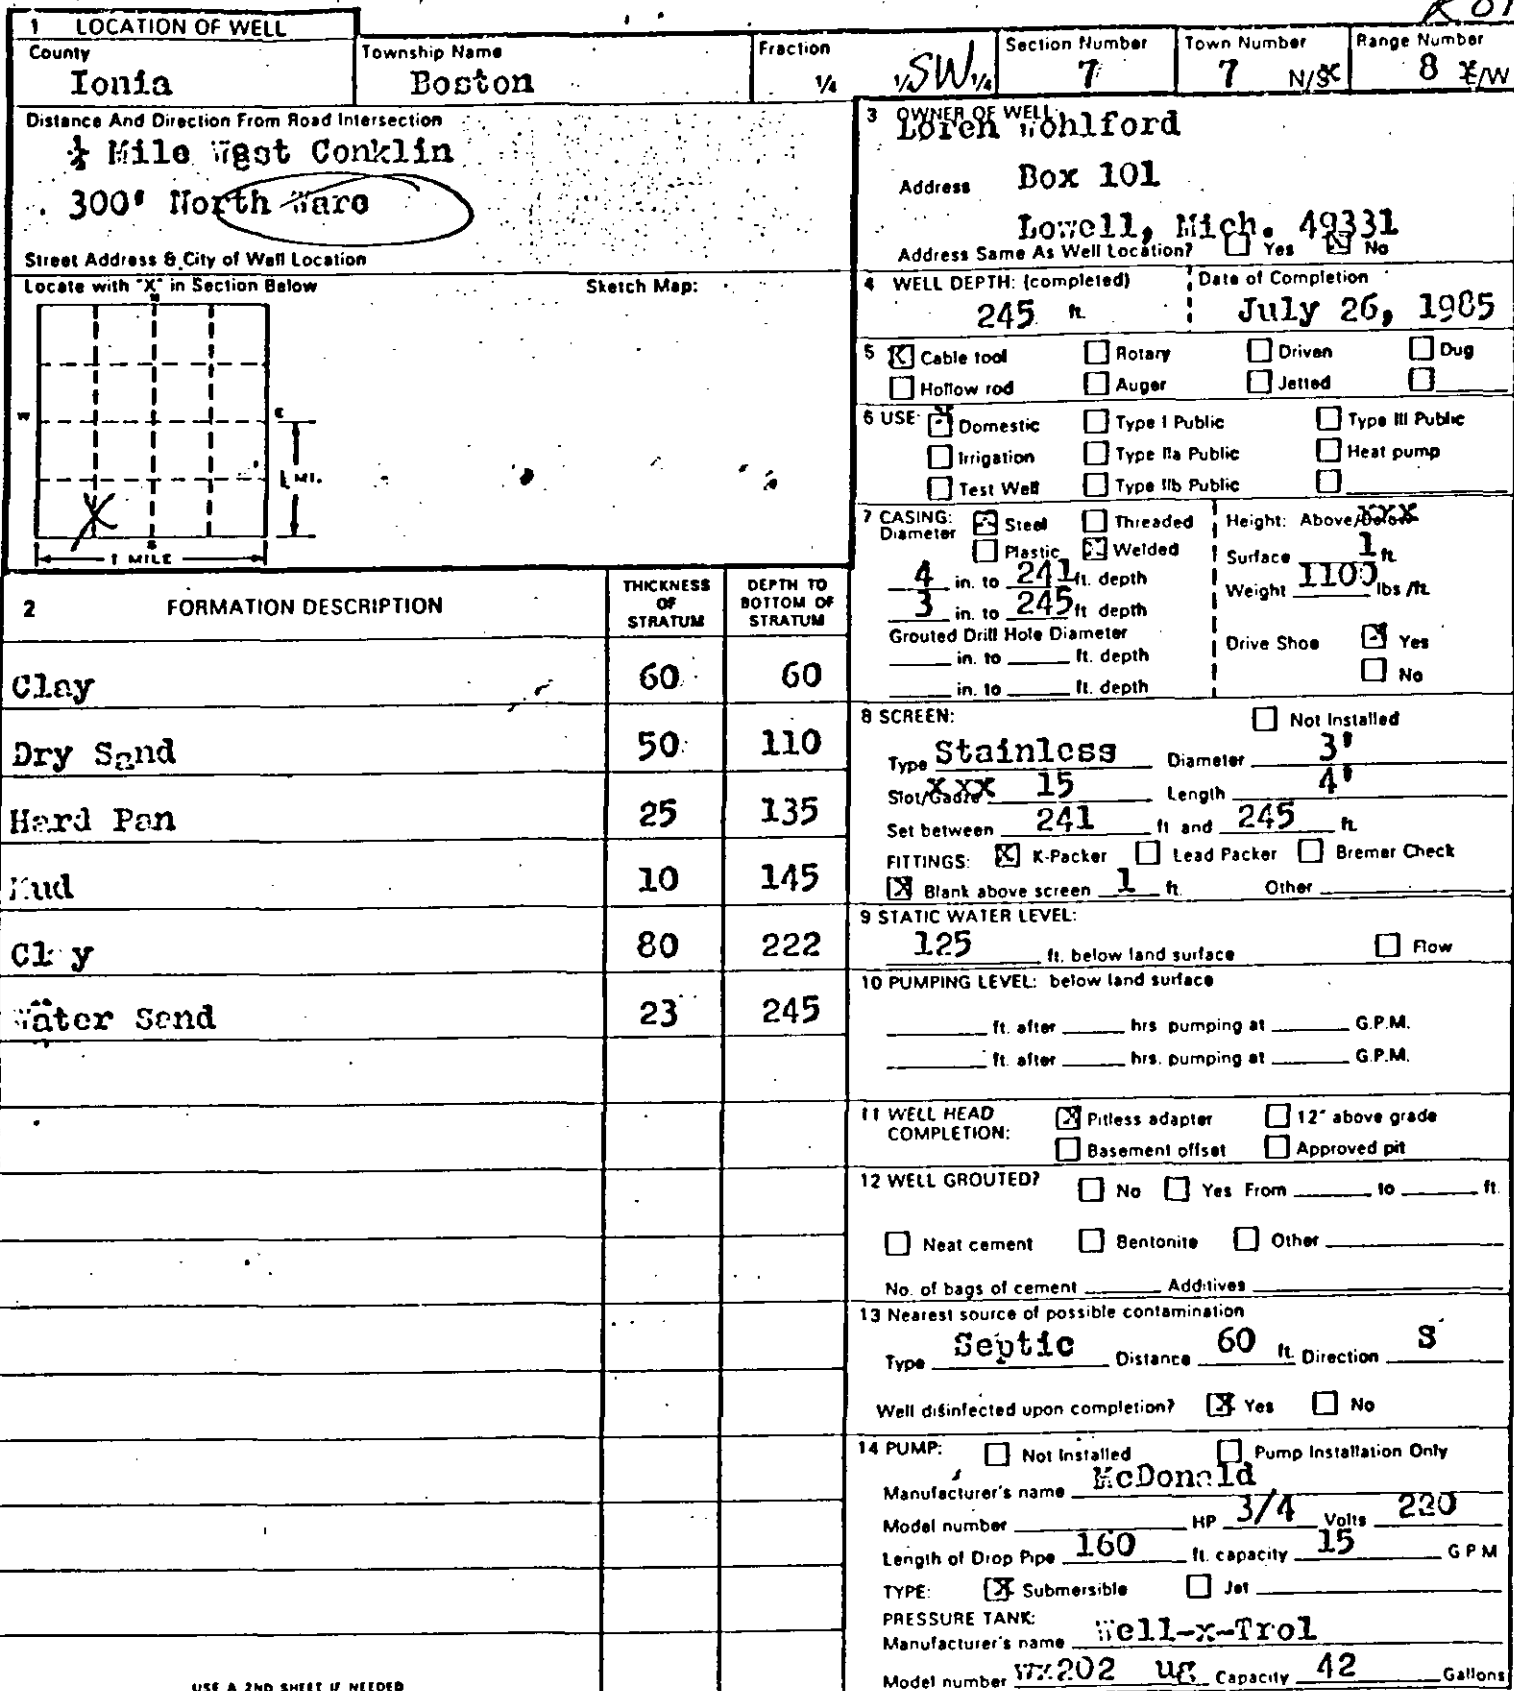 1 LOCATION OF WELL
County
Ionia
Township Name
Boston
Fraction
¼ ¼ SW ¼
Section Number
7
Town Number
7 N/S
Range Number
8 E/W
Distance And Direction From Road Intersection
½ Mile West Conklin
300' North Ware
Street Address & City of Well Location
Locate with "X" in Section Below
Sketch Map:
N
W
E
½ MI.
X
S
1 MILE
2 FORMATION DESCRIPTION
THICKNESS OF STRATUM
DEPTH TO BOTTOM OF STRATUM
Clay 60 60
Dry Sand 50 110
Hard Pan 25 135
Mud 10 145
Clay 80 222
Water Sand 23 245
USE A 2ND SHEET IF NEEDED
3 OWNER OF WELL:
Loren Wohlford
Address Box 101
Lowell, Mich. 49331
Address Same As Well Location? Yes X No
4 WELL DEPTH: (completed)
245 ft.
Date of Completion
July 26, 1985
5 X Cable tool Rotary Driven Dug
Hollow rod Auger Jetted
6 USE: X Domestic Type I Public Type III Public
Irrigation Type IIa Public Heat pump
Test Well Type IIb Public
7 CASING: X Steel Threaded
Diameter Plastic X Welded
4 in. to 241 ft. depth
3 in. to 245 ft. depth
Grouted Drill Hole Diameter
in. to ft. depth
in. to ft. depth
Height: Above/Below XXX
Surface 1 ft.
Weight 1100 lbs/ft.
Drive Shoe X Yes
No
8 SCREEN: Not Installed
Type Stainless Diameter 3"
Slot/Gauze XXX 15 Length 4'
Set between 241 ft and 245 ft.
FITTINGS: X K-Packer Lead Packer Bremer Check
X Blank above screen 1 ft. Other
9 STATIC WATER LEVEL:
125 ft. below land surface Flow
10 PUMPING LEVEL: below land surface
ft. after hrs. pumping at G.P.M.
ft. after hrs. pumping at G.P.M.
11 WELL HEAD COMPLETION: X Pitless adapter 12" above grade
Basement offset Approved pit
12 WELL GROUTED? No Yes From to ft.
Neat cement Bentonite Other
No. of bags of cement Additives
13 Nearest source of possible contamination
Type Septic Distance 60 ft. Direction S
Well disinfected upon completion? X Yes No
14 PUMP: Not Installed Pump Installation Only
Manufacturer's name McDonald
Model number HP 3/4 Volts 220
Length of Drop Pipe 160 ft. capacity 15 G P M
TYPE: X Submersible Jet
PRESSURE TANK:
Manufacturer's name Well-x-Trol
Model number wx202 ug Capacity 42 Gallons